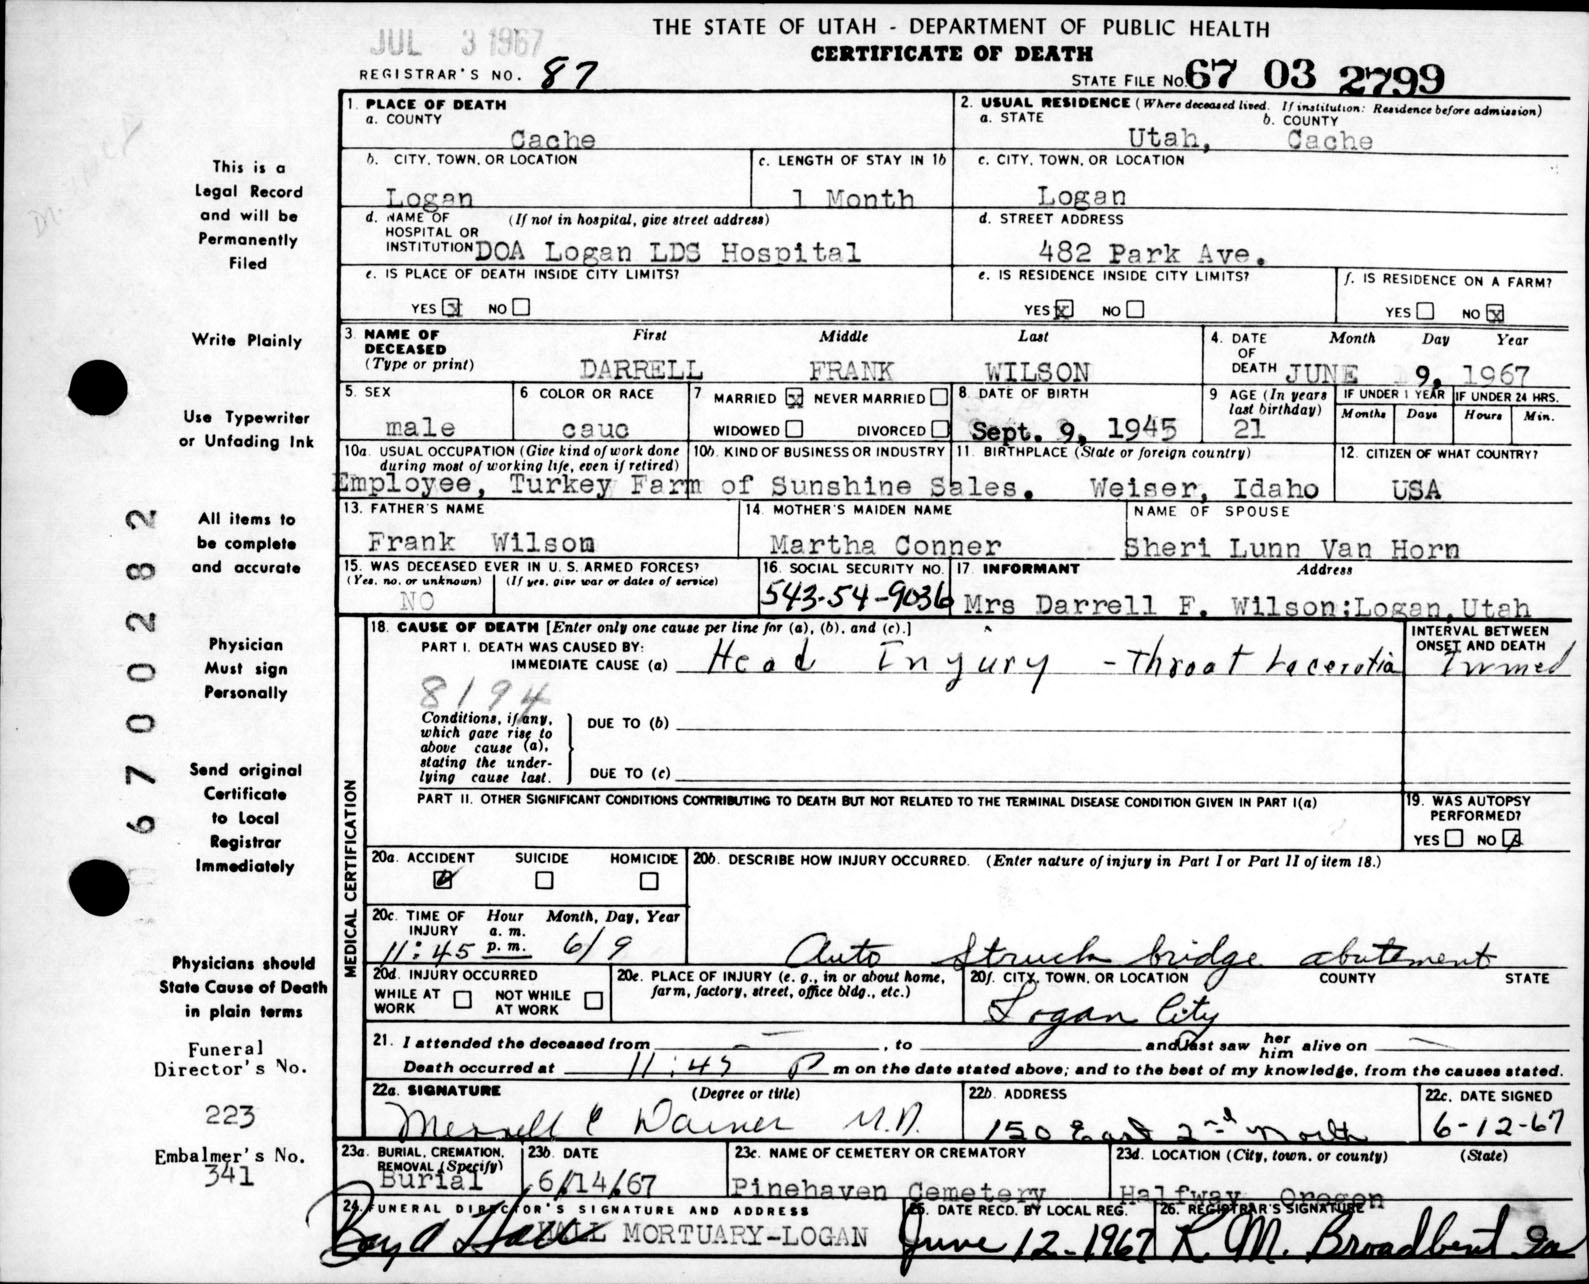 THE STATE OF UTAH - DEPARTMENT OF PUBLIC HEALTH
JUL 3 1967
CERTIFICATE OF DEATH
REGISTRAR'S NO. 87
STATE FILE NO. 67 03 2799
1. PLACE OF DEATH
a. COUNTY
Cache
2. USUAL RESIDENCE (Where deceased lived. If institution: Residence before admission)
a. STATE b. COUNTY
Utah, Cache
b. CITY, TOWN, OR LOCATION
Logan
c. LENGTH OF STAY IN 1b
1 Month
c. CITY, TOWN, OR LOCATION
Logan
d. NAME OF HOSPITAL OR INSTITUTION (If not in hospital, give street address)
DOA Logan LDS Hospital
d. STREET ADDRESS
482 Park Ave.
e. IS PLACE OF DEATH INSIDE CITY LIMITS?
YES x NO
e. IS RESIDENCE INSIDE CITY LIMITS?
YES x NO
f. IS RESIDENCE ON A FARM?
YES NO x
3. NAME OF DECEASED (Type or print)
First Middle Last
DARRELL FRANK WILSON
4. DATE OF DEATH
Month Day Year
JUNE 9, 1967
5. SEX
male
6 COLOR OR RACE
cauc
7 MARRIED x NEVER MARRIED
WIDOWED DIVORCED
8. DATE OF BIRTH
Sept. 9, 1945
9 AGE (In years last birthday)
21
IF UNDER 1 YEAR
Months Days
IF UNDER 24 HRS.
Hours Min.
10a. USUAL OCCUPATION (Give kind of work done during most of working life, even if retired)
10b. KIND OF BUSINESS OR INDUSTRY
Employee, Turkey Farm of Sunshine Sales.
11. BIRTHPLACE (State or foreign country)
Weiser, Idaho
12. CITIZEN OF WHAT COUNTRY?
USA
13. FATHER'S NAME
Frank Wilson
14. MOTHER'S MAIDEN NAME
Martha Conner
NAME OF SPOUSE
Sheri Lunn Van Horn
15. WAS DECEASED EVER IN U.S. ARMED FORCES?
(Yes, no, or unknown) (If yes, give war or dates of service)
NO
16. SOCIAL SECURITY NO.
543-54-9036
17. INFORMANT Address
Mrs Darrell F. Wilson;Logan,Utah
MEDICAL CERTIFICATION
18. CAUSE OF DEATH [Enter only one cause per line for (a), (b), and (c).]
PART I. DEATH WAS CAUSED BY:
IMMEDIATE CAUSE (a) Head Injury - Throat Laceratia
INTERVAL BETWEEN ONSET AND DEATH
Immed
8194
Conditions, if any, which gave rise to above cause (a), stating the underlying cause last.
DUE TO (b)
DUE TO (c)
PART II. OTHER SIGNIFICANT CONDITIONS CONTRIBUTING TO DEATH BUT NOT RELATED TO THE TERMINAL DISEASE CONDITION GIVEN IN PART I(a)
19. WAS AUTOPSY PERFORMED?
YES NO x
20a. ACCIDENT SUICIDE HOMICIDE
20b. DESCRIBE HOW INJURY OCCURRED. (Enter nature of injury in Part I or Part II of item 18.)
Auto struck bridge abutement
20c. TIME OF INJURY Hour Month, Day, Year
a. m.
p. m.
11:45 6/9
20d. INJURY OCCURRED
WHILE AT WORK NOT WHILE AT WORK
20e. PLACE OF INJURY (e. g., in or about home, farm, factory, street, office bldg., etc.)
20f. CITY, TOWN, OR LOCATION COUNTY STATE
Logan City
21. I attended the deceased from — , to and last saw her him alive on —
Death occurred at 11:45 P m on the date stated above; and to the best of my knowledge, from the causes stated.
22a. SIGNATURE (Degree or title)
Merrell C Daines M.D.
22b. ADDRESS
150 East 2nd North
22c. DATE SIGNED
6-12-67
23a. BURIAL, CREMATION, REMOVAL (Specify)
Burial
23b. DATE
6/14/67
23c. NAME OF CEMETERY OR CREMATORY
Pinehaven Cemetery
23d. LOCATION (City, town, or county) (State)
Halfway Oregon
24. FUNERAL DIRECTOR'S SIGNATURE AND ADDRESS
HALL MORTUARY-LOGAN
25. DATE RECD. BY LOCAL REG.
June 12-1967
26. REGISTRAR'S SIGNATURE
R. M. Broadbent
This is a
Legal Record
and will be
Permanently
Filed
Write Plainly
Use Typewriter
or Unfading Ink
All items to
be complete
and accurate
Physician
Must sign
Personally
Send original
Certificate
to Local
Registrar
Immediately
Physicians should
State Cause of Death
in plain terms
Funeral
Director's No.
223
Embalmer's No.
341
6700282